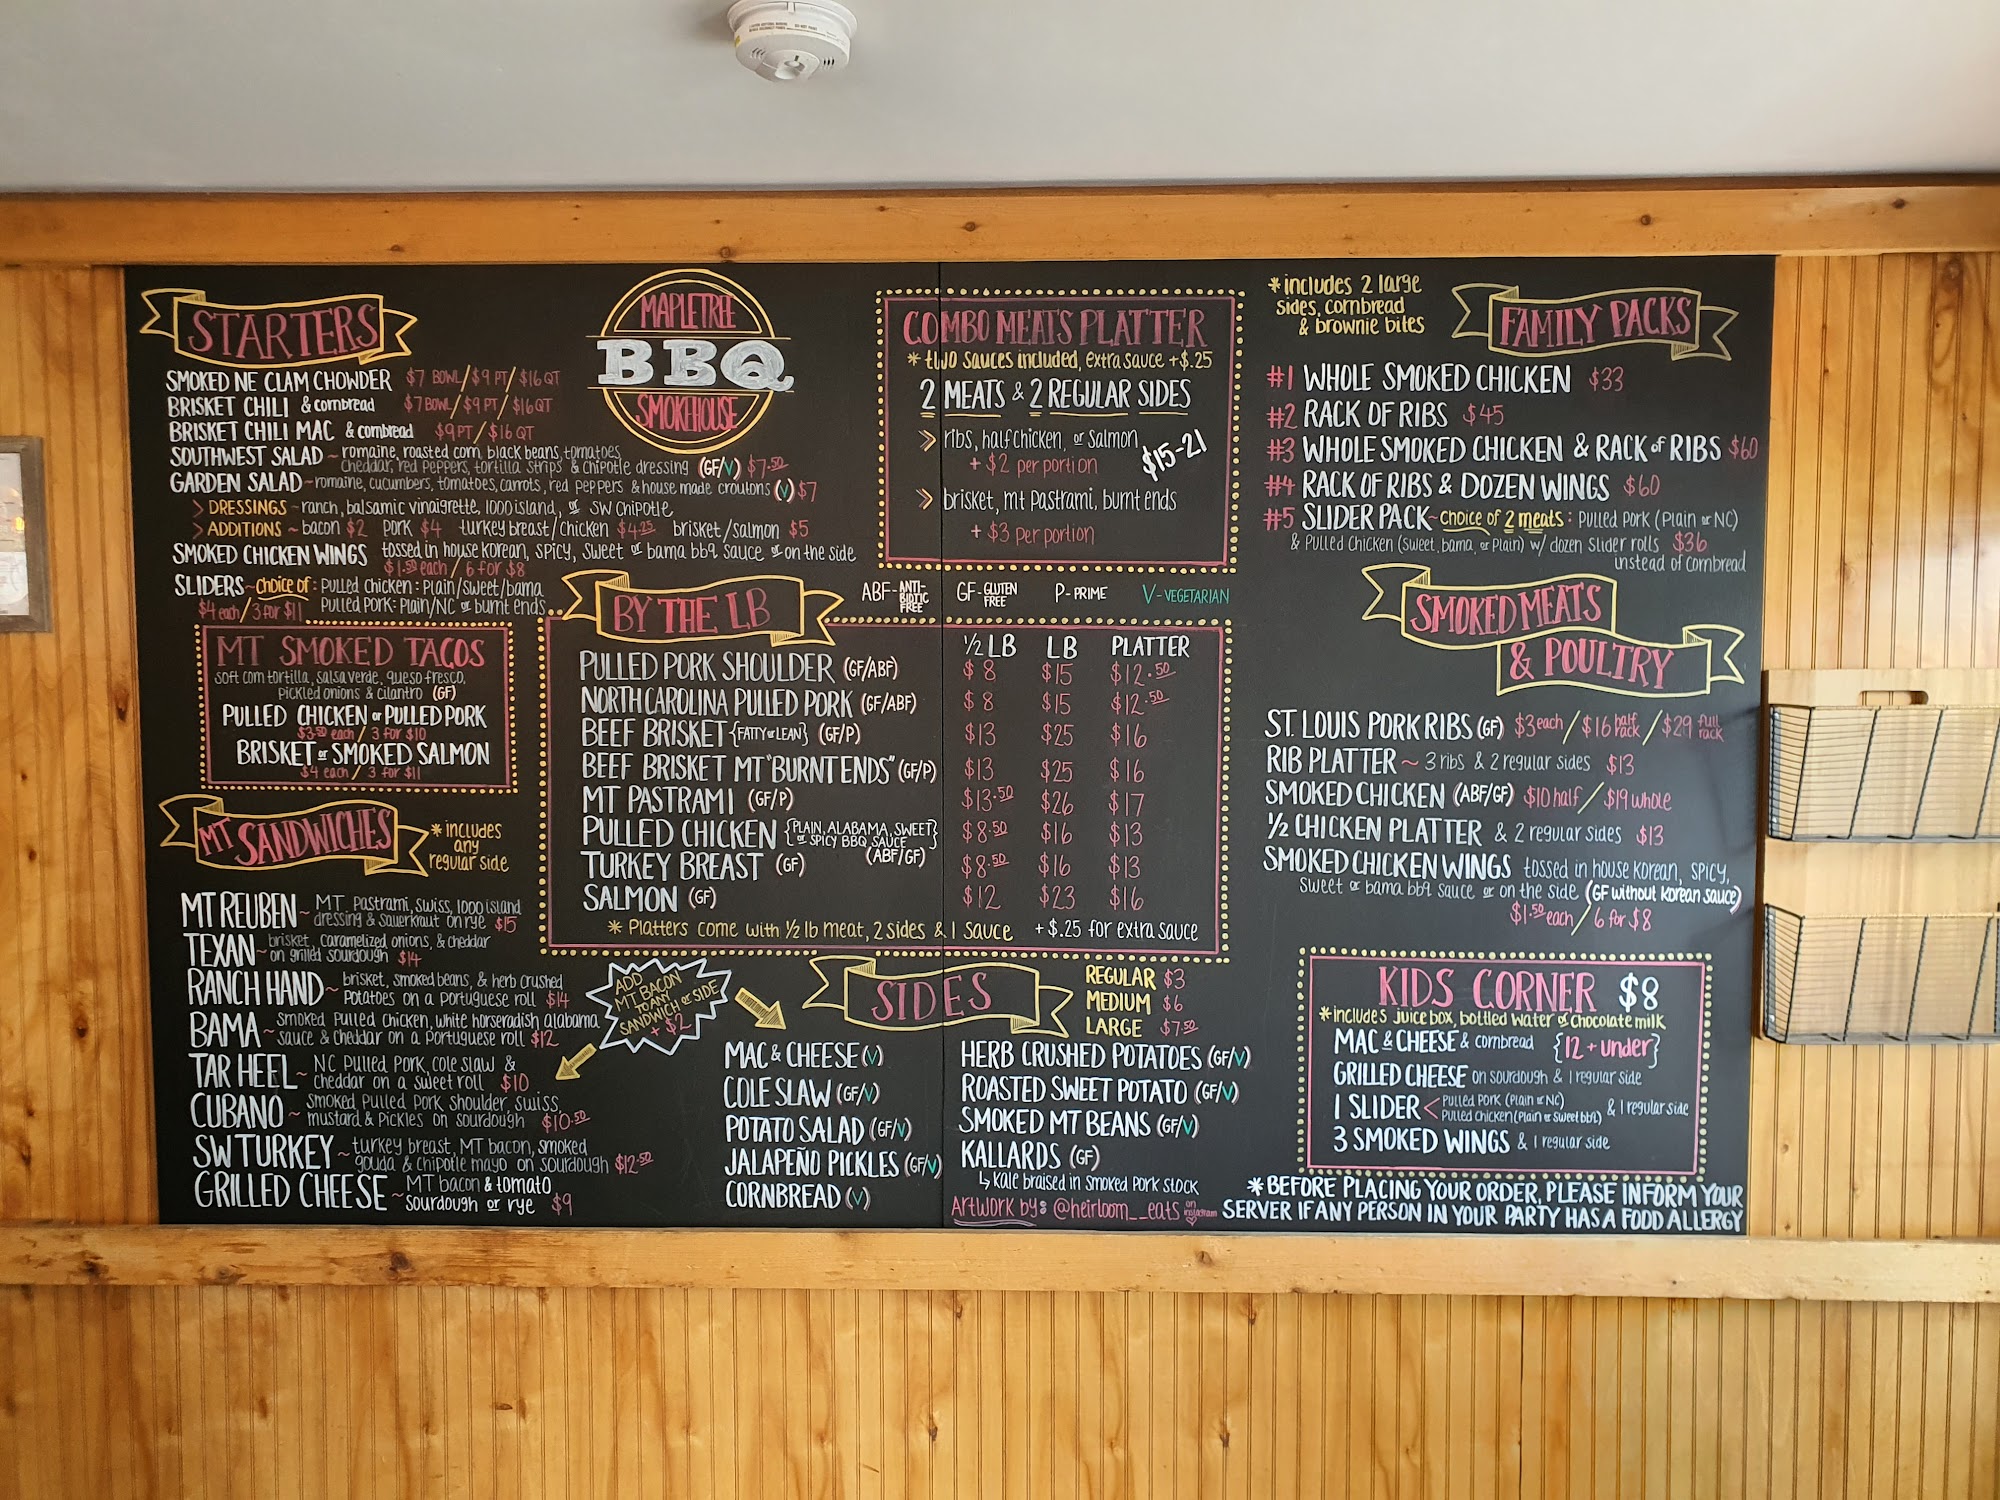 STARTERS
SMOKED NE CLAM CHOWDER $7 BOWL/$9 PT/$16 QT
BRISKET CHILI & cornbread $7 BOWL/$9 PT/$16 QT
BRISKET CHILI MAC & cornbread $9 PT/$16 QT
SOUTHWEST SALAD ~ romaine, roasted corn, black beans, tomatoes
cheddar, red peppers, tortilla strips & chipotle dressing (GF/V) $7.50
GARDEN SALAD ~ romaine, cucumbers, tomatoes, carrots, red peppers & house made croutons (V) $7
> DRESSINGS ~ ranch, balsamic vinaigrette, 1000 island, or SW Chipotle
> ADDITIONS ~ bacon $2 pork $4 turkey breast/chicken $4.25 brisket/salmon $5
SMOKED CHICKEN WINGS tossed in house korean, spicy, sweet or bama bbq sauce or on the side
$1.50 each / 6 for $8
SLIDERS ~ choice of: Pulled Chicken: Plain/sweet/bama
$4 each/3 for $11 Pulled Pork: Plain/NC or burnt ends
MAPLETREE
BBQ
SMOKEHOUSE
MT SMOKED TACOS
soft corn tortilla, salsa verde, queso fresco,
pickled onions & cilantro (GF)
PULLED CHICKEN or PULLED PORK
$3.50 each / 3 for $10
BRISKET or SMOKED SALMON
$4 each / 3 for $11
MT SANDWICHES
* includes
any
regular side
MT REUBEN ~ MT Pastrami, swiss, 1000 island
dressing & sauerkraut on rye $15
TEXAN ~ brisket, caramelized onions, & cheddar
on grilled sourdough $14
RANCH HAND ~ brisket, smoked beans, & herb crushed
Potatoes on a Portuguese roll $14
BAMA ~ smoked Pulled chicken, white horseradish alabama
sauce & cheddar on a Portuguese roll $12
TAR HEEL ~ NC Pulled Pork, cole slaw &
cheddar on a sweet roll $10
CUBANO ~ smoked Pulled Pork shoulder, swiss,
mustard & Pickles on sourdough $10.50
SW TURKEY ~ turkey breast, MT bacon, smoked
gouda & chipotle mayo on sourdough $12.50
GRILLED CHEESE ~ MT bacon & tomato
sourdough or rye $9
COMBO MEATS PLATTER
* two sauces included, extra sauce +$.25
2 MEATS & 2 REGULAR SIDES
>> ribs, half chicken, or salmon
+ $2 per portion
$15-21
>> brisket, mt Pastrami, burnt ends
+ $3 per portion
ABF - ANTI-BIOTIC FREE GF - GLUTEN FREE P - PRIME V - VEGETARIAN
BY THE LB
½ LB LB PLATTER
PULLED PORK SHOULDER (GF/ABF) $8 $15 $12.50
NORTH CAROLINA PULLED PORK (GF/ABF) $8 $15 $12.50
BEEF BRISKET {FATTY or LEAN} (GF/P) $13 $25 $16
BEEF BRISKET MT "BURNT ENDS" (GF/P) $13 $25 $16
MT PASTRAMI (GF/P) $13.50 $26 $17
PULLED CHICKEN {PLAIN, ALABAMA, SWEET or SPICY BBQ SAUCE} (ABF/GF) $8.50 $16 $13
TURKEY BREAST (GF) $8.50 $16 $13
SALMON (GF) $12 $23 $16
* Platters come with ½ lb meat, 2 sides & 1 sauce + $.25 for extra sauce
ADD
MT BACON
TO ANY
SANDWICH or SIDE
+ $2
SIDES
REGULAR $3
MEDIUM $6
LARGE $7.50
MAC & CHEESE (V)
COLE SLAW (GF/V)
POTATO SALAD (GF/V)
JALAPEÑO PICKLES (GF/V)
CORNBREAD (V)
HERB CRUSHED POTATOES (GF/V)
ROASTED SWEET POTATO (GF/V)
SMOKED MT BEANS (GF/V)
KALLARDS (GF)
↳ kale braised in smoked pork stock
Artwork by: @heirloom__eats on instagram
* includes 2 large
sides, cornbread
& brownie bites
FAMILY PACKS
#1 WHOLE SMOKED CHICKEN $33
#2 RACK OF RIBS $45
#3 WHOLE SMOKED CHICKEN & RACK of RIBS $60
#4 RACK OF RIBS & DOZEN WINGS $60
#5 SLIDER PACK ~ Choice of 2 meats: Pulled Pork (Plain or NC)
& Pulled Chicken (sweet, bama, or Plain) w/ dozen slider rolls $36
instead of cornbread
SMOKED MEATS
& POULTRY
ST. LOUIS PORK RIBS (GF) $3 each/$16 half rack/$29 full rack
RIB PLATTER ~ 3 ribs & 2 regular sides $13
SMOKED CHICKEN (ABF/GF) $10 half/$19 whole
½ CHICKEN PLATTER & 2 regular sides $13
SMOKED CHICKEN WINGS tossed in house korean, spicy,
sweet or bama bbq sauce or on the side (GF without Korean sauce)
$1.50 each/ 6 for $8
KIDS CORNER $8
* includes juice box, bottled water or chocolate milk
MAC & CHEESE & cornbread {12 + under}
GRILLED CHEESE on sourdough & 1 regular side
1 SLIDER < Pulled Pork (Plain or NC)
Pulled Chicken (Plain or Sweet bbq) & 1 regular side
3 SMOKED WINGS & 1 regular side
* BEFORE PLACING YOUR ORDER, PLEASE INFORM YOUR
SERVER IF ANY PERSON IN YOUR PARTY HAS A FOOD ALLERGY